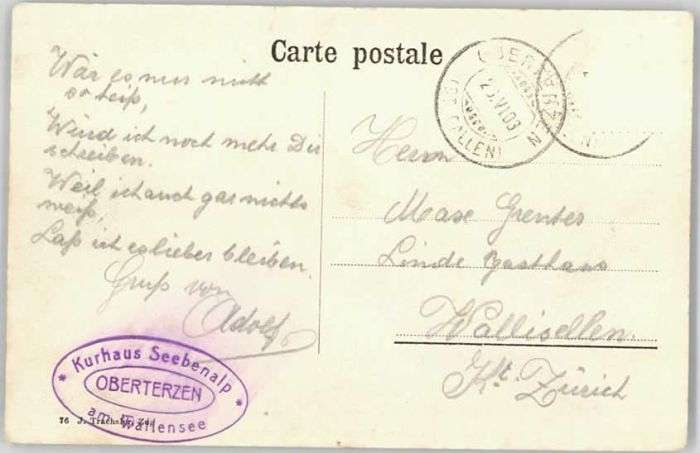 Carte postale
Wär es nur nicht
so heiß,
Würd ich noch mehr Dir
schreiben.
Weil ich auch gar nichts
weiß,
Laß ich es lieber bleiben.
Gruß von
Adolf
Herrn
Max
Linde Gasthaus
Wallisellen
Kt. Zürich
OBERTERZEN
(ST. GALLEN)
VI.03
* Kurhaus Seebenalp *
OBERTERZEN
am Wallensee
76 J.